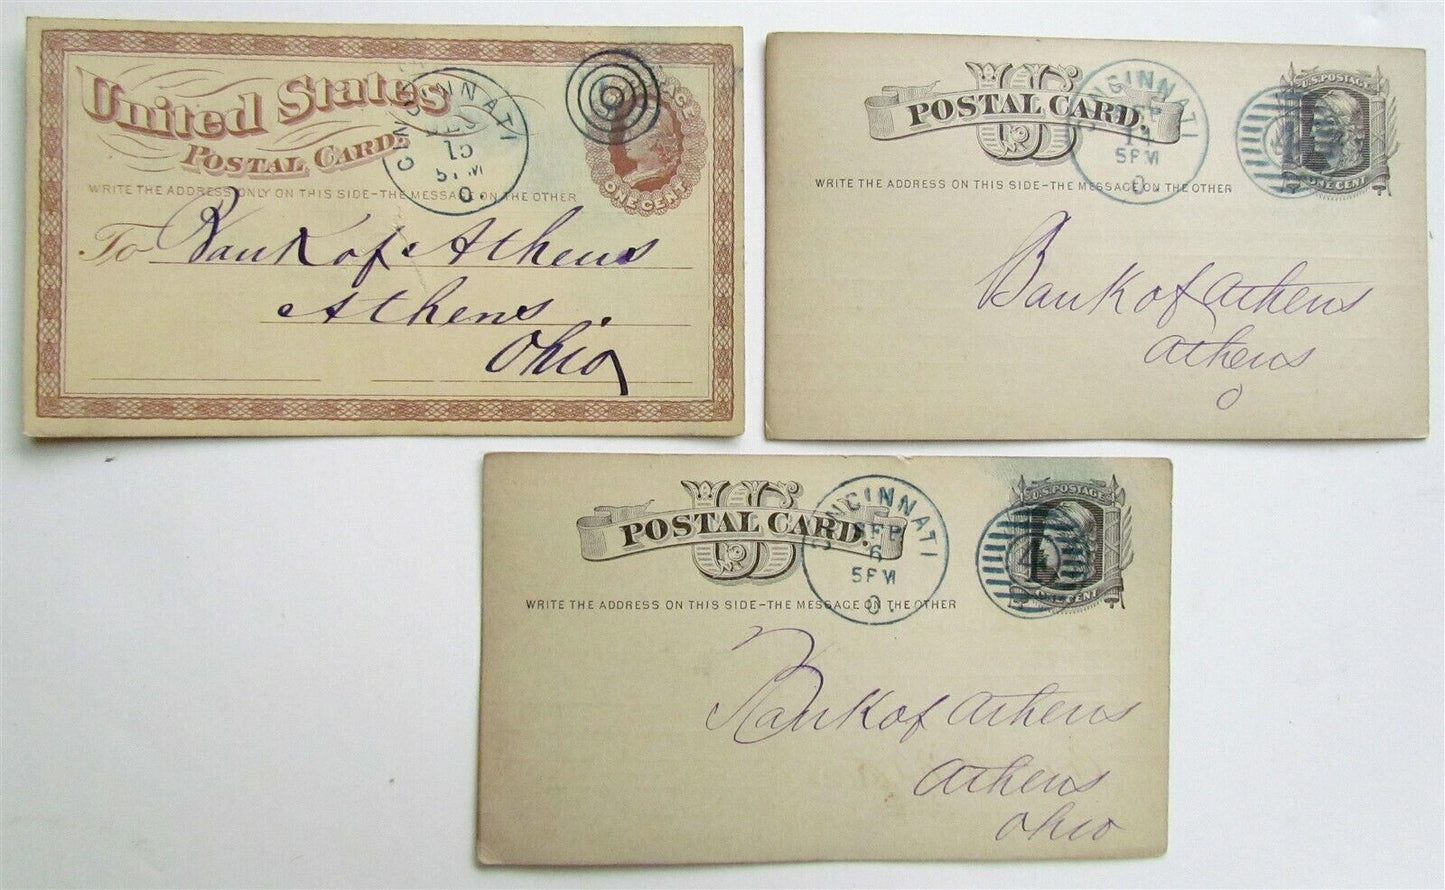 United States
POSTAL CARD.
CINCINNATI
DEC
15
5 PM
O
ONE CENT
WRITE THE ADDRESS ONLY ON THIS SIDE–THE MESSAGE ON THE OTHER
To Bank of Athens
Athens.
Ohio,
US
POSTAL CARD.
CINCINNATI
11
5 PM
O
U.S. POSTAGE
ONE CENT
WRITE THE ADDRESS ON THIS SIDE–THE MESSAGE ON THE OTHER
Bank of Athens
Athens
O
US
POSTAL CARD.
CINCINNATI
FEB
6
5 PM
O.
U.S. POSTAGE
4
ONE CENT
WRITE THE ADDRESS ON THIS SIDE–THE MESSAGE ON THE OTHER
Bank of Athens
Athens
Ohio